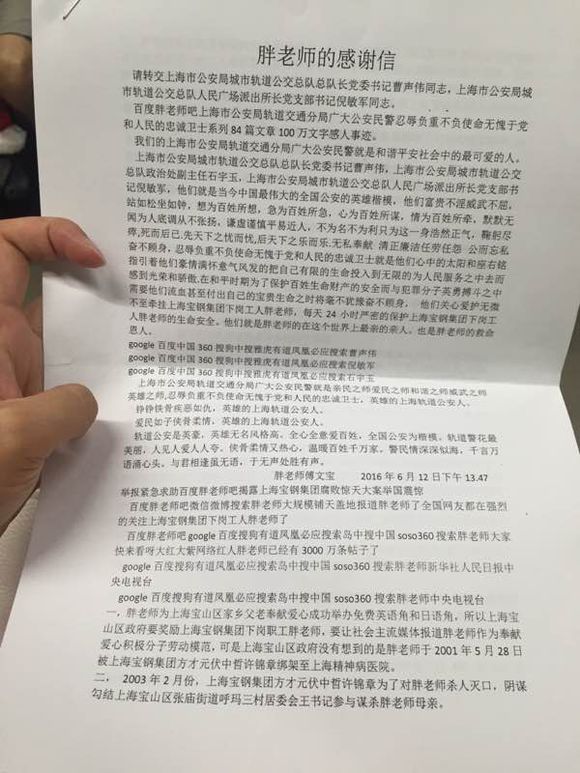 胖老师的感谢信
请转交上海市公安局城市轨道公交总队总队长党委书记曹声伟同志，上海市公安局城
市轨道公交总队人民广场派出所长党支部书记倪敏军同志。
百度胖老师吧上海市公安局轨道交通分局广大公安民警忍辱负重不负使命无愧于党
和人民的忠诚卫士系列 84 篇文章 100 万文字感人事迹。
我们的上海市公安局轨道交通分局广大公安民警就是和谐平安社会中的最可爱的人。
上海市公安局城市轨道公交总队总队长党委书记曹声伟，上海市公安局城市轨道公交
总队政治处副主任石宇玉，上海市公安局城市轨道公交总队人民广场派出所长党支部书
记倪敏军，他们就是当今中国最伟大的全国公安的英雄楷模，他们富贵不淫威武不屈，
站如松坐如钟，想为百姓所想，急为百姓所急，心为百姓所谋，情为百姓所牵，默默无
闻为人底调从不张扬，谦虚谨慎平易近人，不为名不为利只为这一身浩然正气，鞠躬尽
瘁,死而后已.先天下之忧而忧,后天下之乐而乐.无私奉献 清正廉洁任劳任怨 公而忘私
奋不顾身，忍辱负重不负使命无愧于党和人民的忠诚卫士就是他们心中的太阳和座右铭
指引着他们豪情满怀意气风发的把自己有限的生命投入到无限的为人民服务之中去而
感到光荣和骄傲.在和平时期为了保护百姓生命财产的安全而与犯罪分子英勇搏斗之中
需要他们流血甚至付出自己的宝贵生命之时将毫不犹豫奋不顾身，他们关心爱护无微
不至牵挂上海宝钢集团下岗工人胖老师，每天 24 小时严密的保护上海宝钢集团下岗工
人胖老师的生命安全。他们就是胖老师的在这个世界上最亲的亲人。也是胖老师的救命
恩人。
google 百度中国 360 搜狗中搜雅虎有道凤凰必应搜索曹声伟
google 百度中国 360 搜狗中搜雅虎有道凤凰必应搜索倪敏军
google 百度中国 360 搜狗中搜雅虎有道凤凰必应搜索石宇玉
上海市公安局轨道交通分局广大公安民警就是亲民之师爱民之师和谐之师威武之师
英雄之师,忍辱负重不负使命无愧于党和人民的忠诚卫士，英雄的上海轨道公安人。
铮铮铁骨疾恶如仇，英雄的上海轨道公安人。
爱民如子侠骨柔情，英雄的上海轨道公安人。
轨道公安是英豪，英雄无名风格高。全心全意爱百姓，全国公安为楷模。轨道警花最
美丽，人见人爱人人夸。侠骨柔情又热心，温暖百姓千万家。警民情深深似海，千言万
语涌心头。与君相逢虽无语，于无声处胜有声。
胖老师傅文宝 2016 年 6 月 12 日下午 13.47
举报紧急求助百度胖老师吧揭露上海宝钢集团腐败惊天大案举国震惊
百度胖老师吧微信微博搜索胖老师大规模铺天盖地报道胖老师了全国网友都在强烈
的关注上海宝钢集团下岗工人胖老师了
百度胖老师吧 google 百度搜狗有道凤凰必应搜索岛中搜中国 soso360 搜索胖老师大家
快来看呀大红大紫网络红人胖老师已经有 3000 万条帖子了
google 百度搜狗有道凤凰必应搜索岛中搜中国 soso360 搜索胖老师新华社人民日报中
央电视台
google 百度搜狗有道凤凰必应搜索岛中搜中国 soso360 搜索胖老师中央电视台
一，胖老师为上海宝山区家乡父老奉献爱心成功举办免费英语角和日语角，所以上海宝
山区政府要奖励上海宝钢集团下岗职工胖老师，要让社会主流媒体报道胖老师作为奉献
爱心积极分子劳动模范，可是上海宝山区政府没有想到的是胖老师于 2001 年 5 月 28 日
被上海宝钢集团方才元伏中哲许锦章绑架至上海精神病医院。
二， 2003 年 2 月份，上海宝钢集团方才元伏中哲许锦章为了对胖老师杀人灭口，阴谋
勾结上海宝山区张庙街道呼玛三村居委会王书记参与谋杀胖老师母亲。